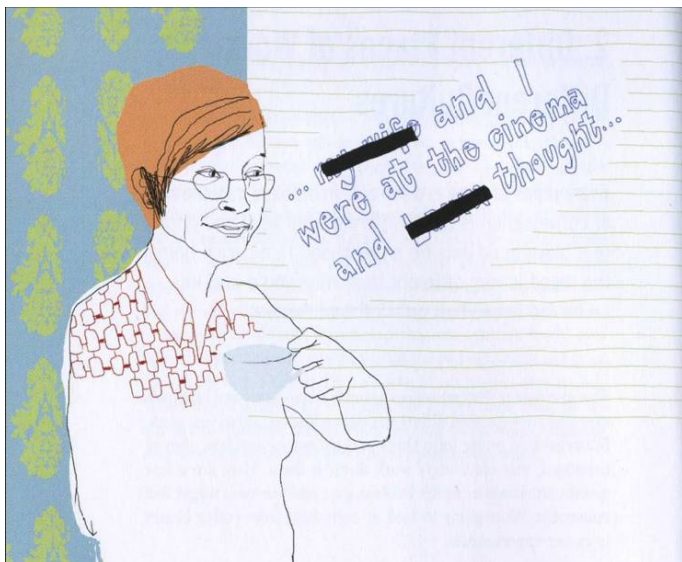 ...my wife and I
were at the cinema
and thought...